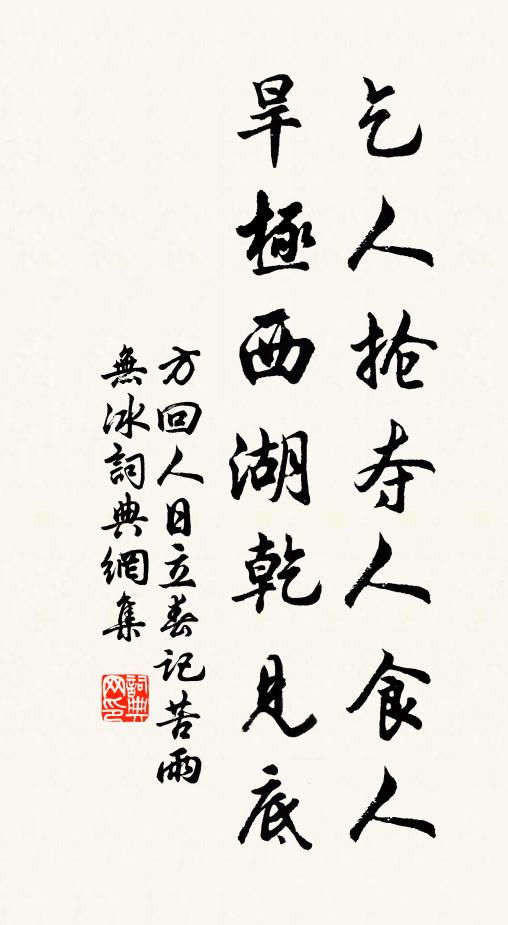 乞人抢夺人食人
旱極西湖乾見底
方回人日立春記苦雨
無冰詞典網集
詞典网印